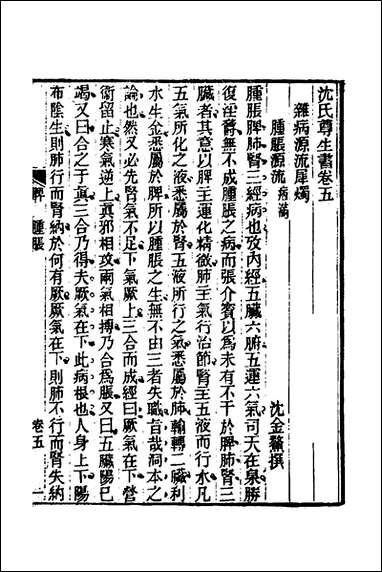 沈氏尊生書卷五
雜病源流犀燭
沈金鰲撰
腫脹源流 痞滿
腫脹脾肺腎三經病也攷內經五臟六腑五運六氣司天在泉勝
復淫鬱無不成腫脹之病而張介賓以爲未有不干於脾肺腎三
臟者其意以脾主運化精微肺主氣行治節腎主五液而行水凡
五氣所化之液悉屬於腎五液所行之氣悉屬於肺輸轉二臟利
水生金悉屬於脾所以腫脹之生無不由三者失職旨哉洞本之
論也然又必先腎氣不足下氣厥上三合而成經曰厥氣在下營
衞留止寒氣逆上眞邪相攻兩氣相搏乃合爲脹又曰五臟陽已
竭又曰合之于眞三合乃得夫厥氣在下此病根也人身上下陽
布陰生則肺行而腎納於何有厥厥氣在下則肺不行而腎失納
脾 腫脹
卷五
一